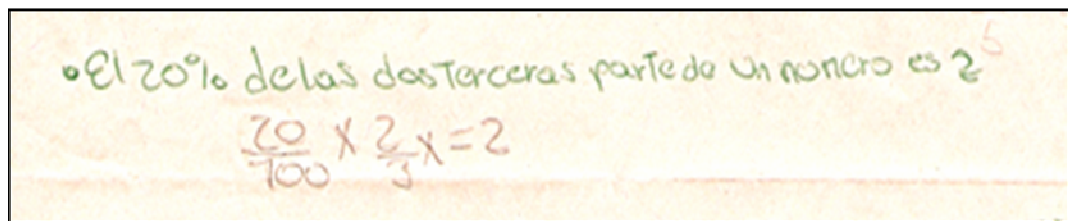 •El 20% delas dosTerceras parTe de un numero es 2
20/100 x 2/3 x = 2